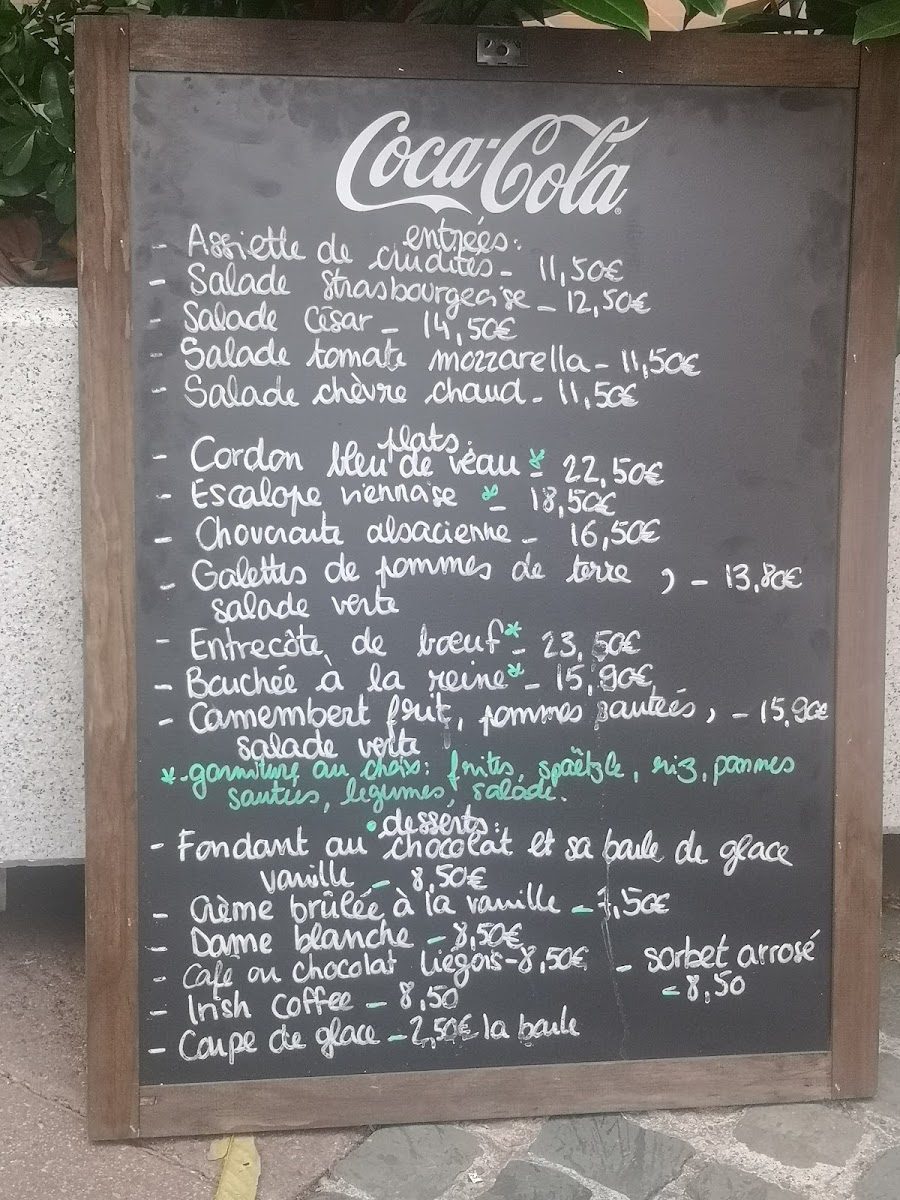 Coca-Cola
entrées:
- Assiette de crudités - 11,50€
- Salade strasbourgeoise - 12,50€
- Salade César - 14,50€
- Salade tomate mozzarella - 11,50€
- Salade chèvre chaud - 11,50€
plats:
- Cordon bleu de veau * - 22,50€
- Escalope viennaise * - 18,50€
- Choucroute alsacienne - 16,50€
- Galettes de pommes de terre , - 13,80€
salade verte
- Entrecôte de bœuf * - 23,50€
- Bouchée à la reine * - 15,90€
- Camembert frit, pommes sautées, - 15,90€
salade verte
* - garniture au choix: frites, spaëtzle, riz, pommes
sautées, légumes, salade.
• desserts:
- Fondant au chocolat et sa boule de glace
vanille - 8,50€
- Crème brûlée à la vanille - 7,50€
- Dame blanche - 8,50€
- Café ou chocolat liégois - 8,50€
- sorbet arrosé
- 8,50
- Irish Coffee - 8,50
- Coupe de glace - 2,50€ la boule